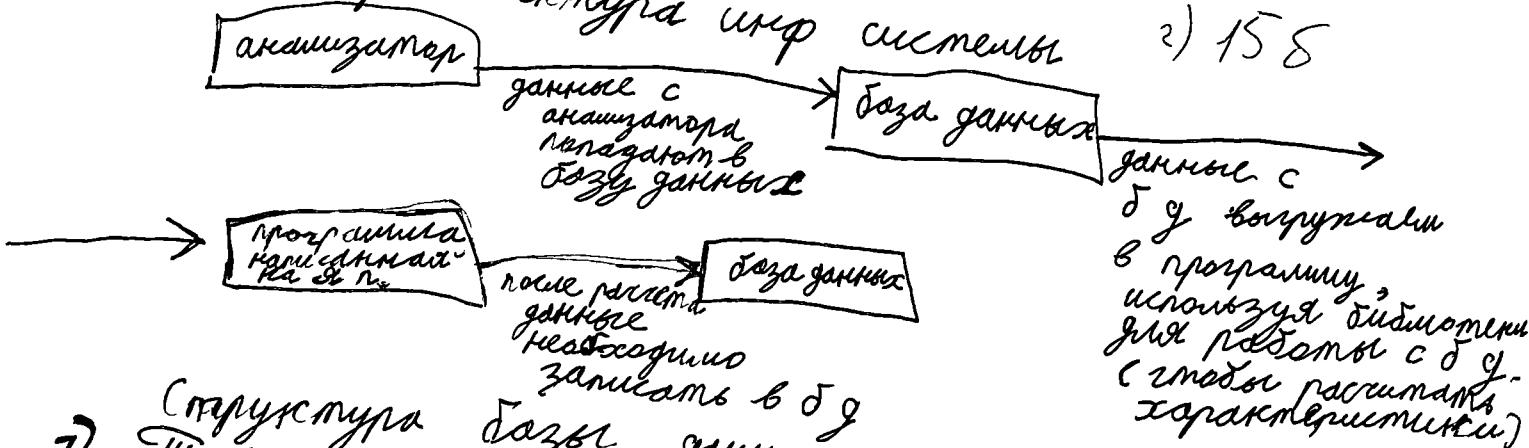 ктура инф системы
г) 15 б
анализатор
данные с
анализатора
попадают в
базу данных
база данных
данные с
б д выгружаем
в программу,
используя библиотеки
для работы с б д.
(чтобы расчитать
характеристики)
программа
написанная
на я п.
после расчета
данные
необходимо
записать в б д
база данных
Структура базы